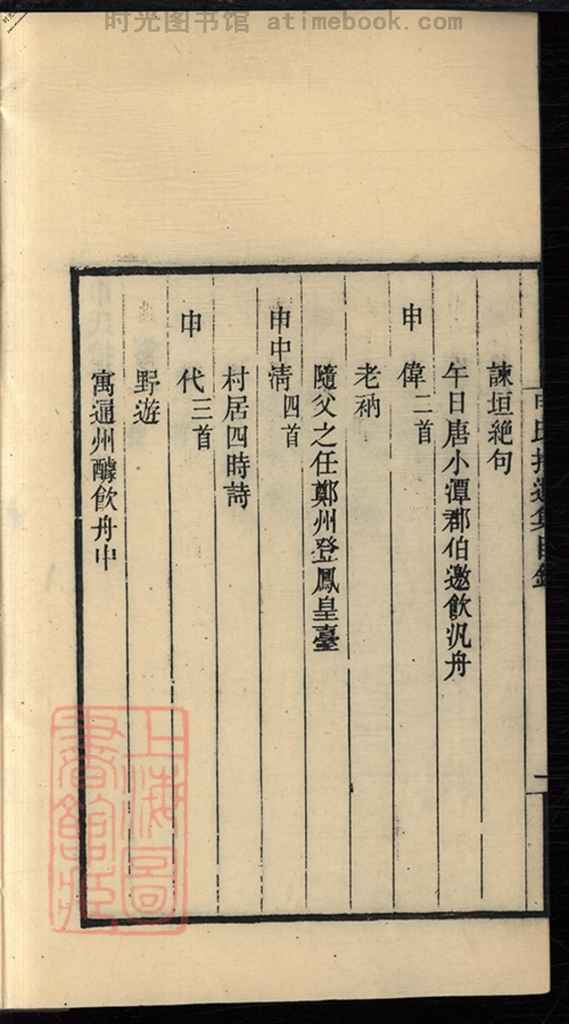 时光图书馆 atimebook.com
諫垣絶句
午日唐小潭郡伯邀飲汎舟
申 偉 二首
老衲
隨父之任鄭州登鳳皇臺
申中清 四首
村居四時詩
申 代 三首
野遊
寓通州醵飲舟中
上海圖
書館藏